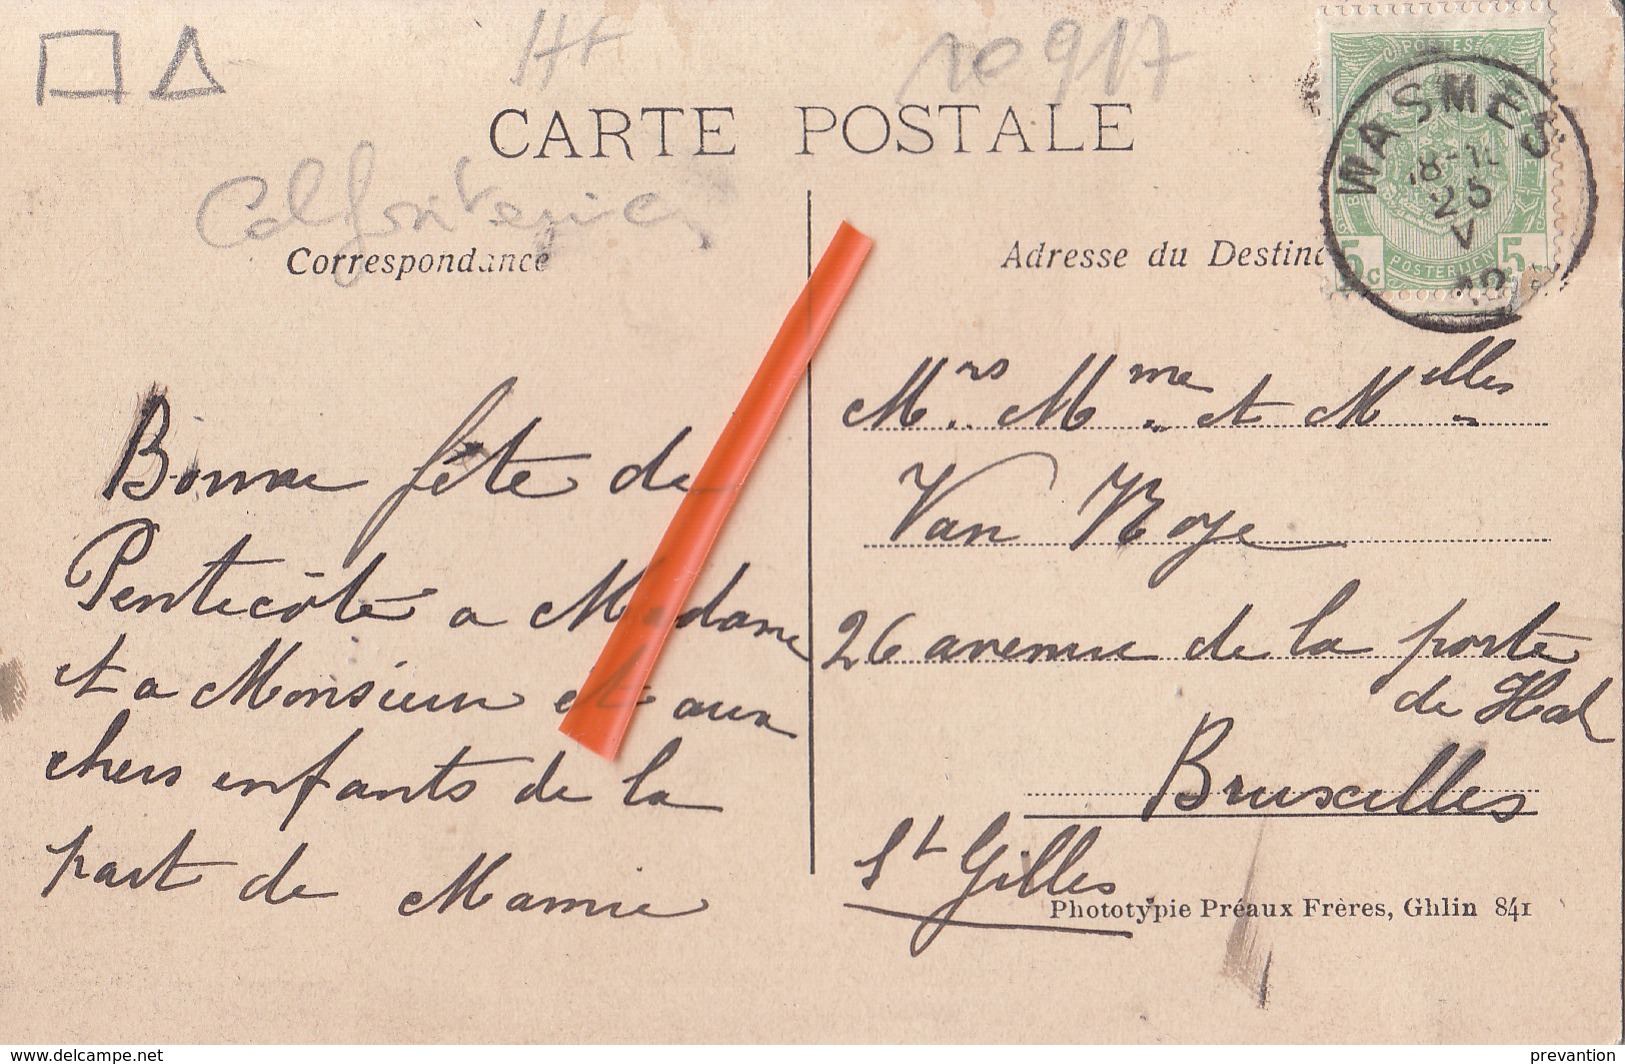 Ht
10917
CARTE POSTALE
Colfontaine
Correspondance
Bonne fête de
Pentecôte a Madame
et a Monsieur et aux
chers enfants de la
part de Mamie
Adresse du Destina
POSTES
POSTERIJEN
5c 5c
WASMES
8-11
25
V
Mrs. Mme et Melles
Van Roye
26 avenue de la porte
de Hal
Bruxelles
St Gilles
Phototypie Préaux Frères, Ghlin 841
www.delcampe.net
prevantion